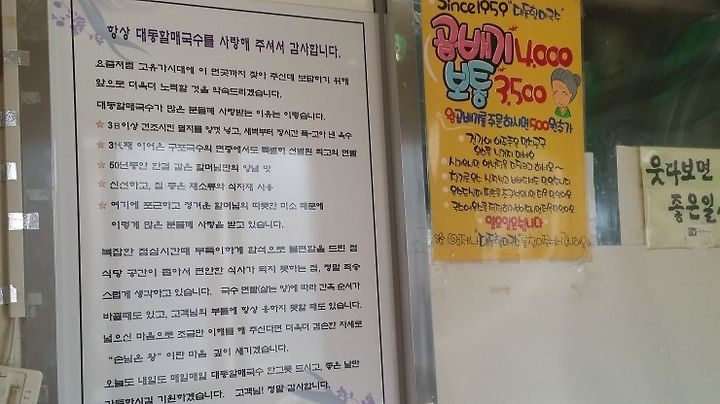 항상 대동할매국수를 사랑해 주셔서 감사합니다.
요즘처럼 고유가시대에 이 먼곳까지 찾아 주신데 보답하기 위해
앞으로 더욱더 노력할 것을 약속드리겠습니다.
대동할매국수가 많은 분들께 사랑받는 이유는 이렇습니다.
★ 3일이상 건조시킨 멸치를 양껏 넣고, 새벽부터 장시간 푹~고아 낸 육수
★ 3代째 이어온 구포국수의 면중에서도 특별히 선별된 최고의 면발
★ 50년동안 한결 같은 할머님만의 양념 맛
★ 신선하고, 질 좋은 채소류와 식자재 사용
★ 여기에 포근하고 정겨운 할머님의 따뜻한 미소 때문에
이렇게 많은 분들께 사랑을 받고 있습니다.
복잡한 점심시간때 부득이하게 합석으로 불편함을 드린 점
식당 공간이 좁아서 편안한 식사가 되지 못하는 점, 정말 죄송
스럽게 생각하고 있습니다. 국수 면발(삶는 양)에 따라 간혹 순서가
바뀔때도 있고, 고객님의 부름에 항상 응하지 못할 때도 있습니다.
넓으신 마음으로 조금만 이해를 해 주신다면 더욱더 겸손한 자세로
"손님은 왕" 이란 마음 깊이 새기겠습니다.
오늘도 내일도 매일매일 대동할매국수 한그릇 드시고, 좋은 날만
가득하시길 기원하겠습니다. 고객님! 정말 감사합니다.
Since1959 "대동할매국수"
곱배기 4,000
보통 3,500
왕곱배기를 주문하시면 500원추가
일요일은쉽니다
웃다보면
좋은일